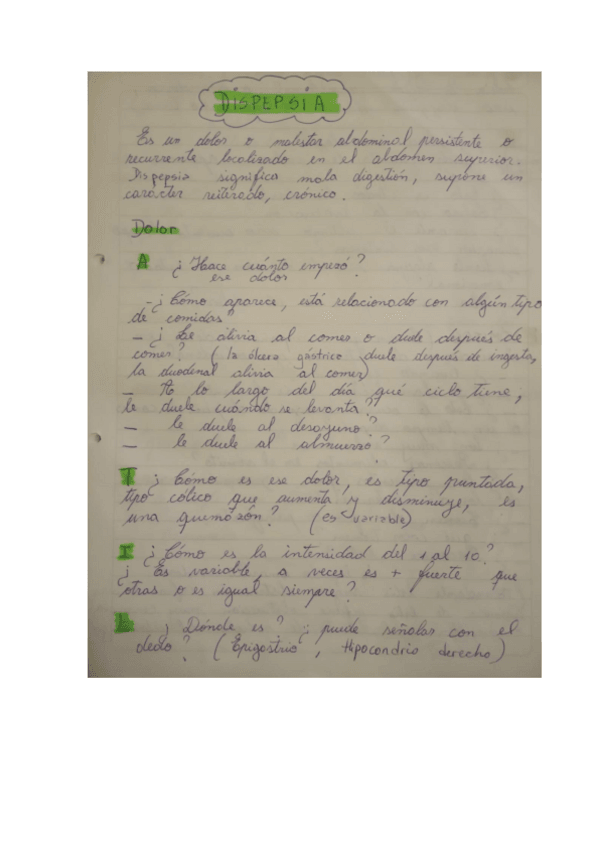 DISPEPSIA
Es un dolor o malestar abdominal persistente o
recurrente localizado en el abdomen superior.
Dispepsia significa mala digestión, supone un
carácter reiterado, crónico.
Dolor
A ¿Hace cuánto empezó?
ese dolor
-¿Cómo aparece, está relacionado con algún tipo
de comidas?
- ¿Le alivia al comer o duele después de
comer? (la úlcera gástrica duele después de ingesta,
la duodenal alivia al comer)
- A lo largo del día qué ciclo tiene,
le duele cuándo se levanta?
- le duele al desayuno?
- le duele al almuerzo?
T ¿Cómo es ese dolor, es tipo puntada,
tipo cólico que aumenta y disminuye, es
una quemazón? (es variable)
I ¿Cómo es la intensidad del 1 al 10?
¿Es variable, a veces es + fuerte que
otras o es igual siempre?
L ¿Dónde es? ¿puede señalar con el
dedo? (Epigastrio, Hipocondrio derecho)